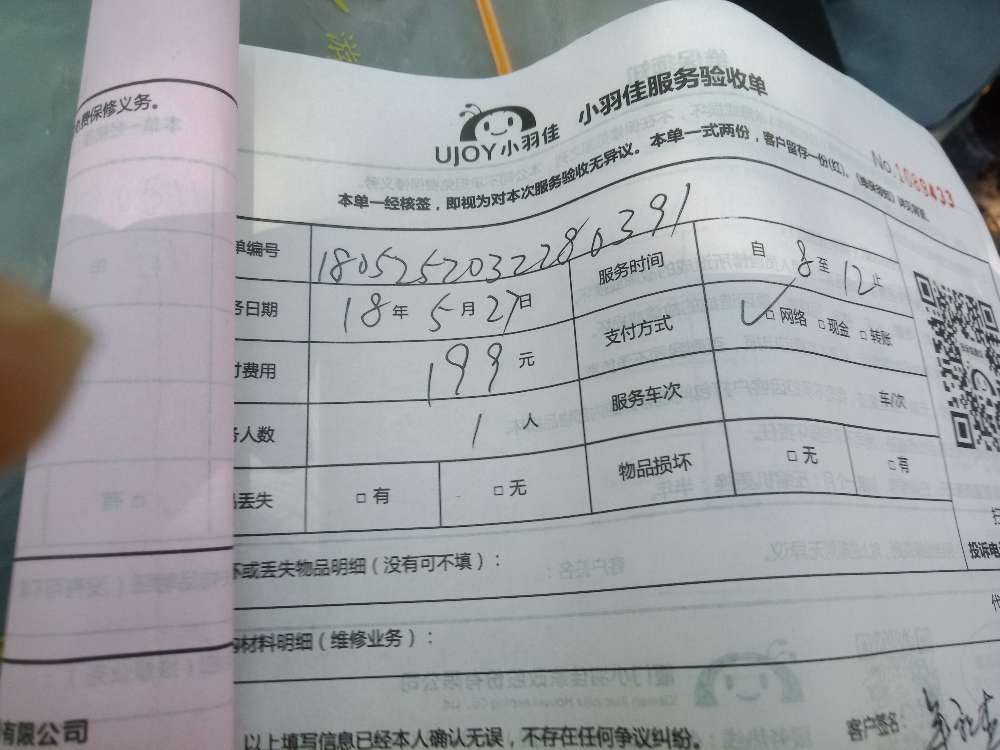 免费保修义务。
UJOY小羽佳 小羽佳服务验收单
本单一经核签，即视为对本次服务验收无异议。本单一式两份，客户留存一份(红)。
No.1089433
单编号 1805252032280391 服务时间 自 8 至 12 止
务日期 18 年 5 月 27 日 支付方式 ✓□网络 □现金 □转账
付费用 199 元 服务车次 车/次
务人数 1 人 物品损坏 □无 □有
丢失 □有 □无
坏或丢失物品明细（没有可不填）：
投诉电
材料明细（维修业务）：
代
有限公司
以上填写信息已经本人确认无误，不存在任何争议纠纷。
客户签名：